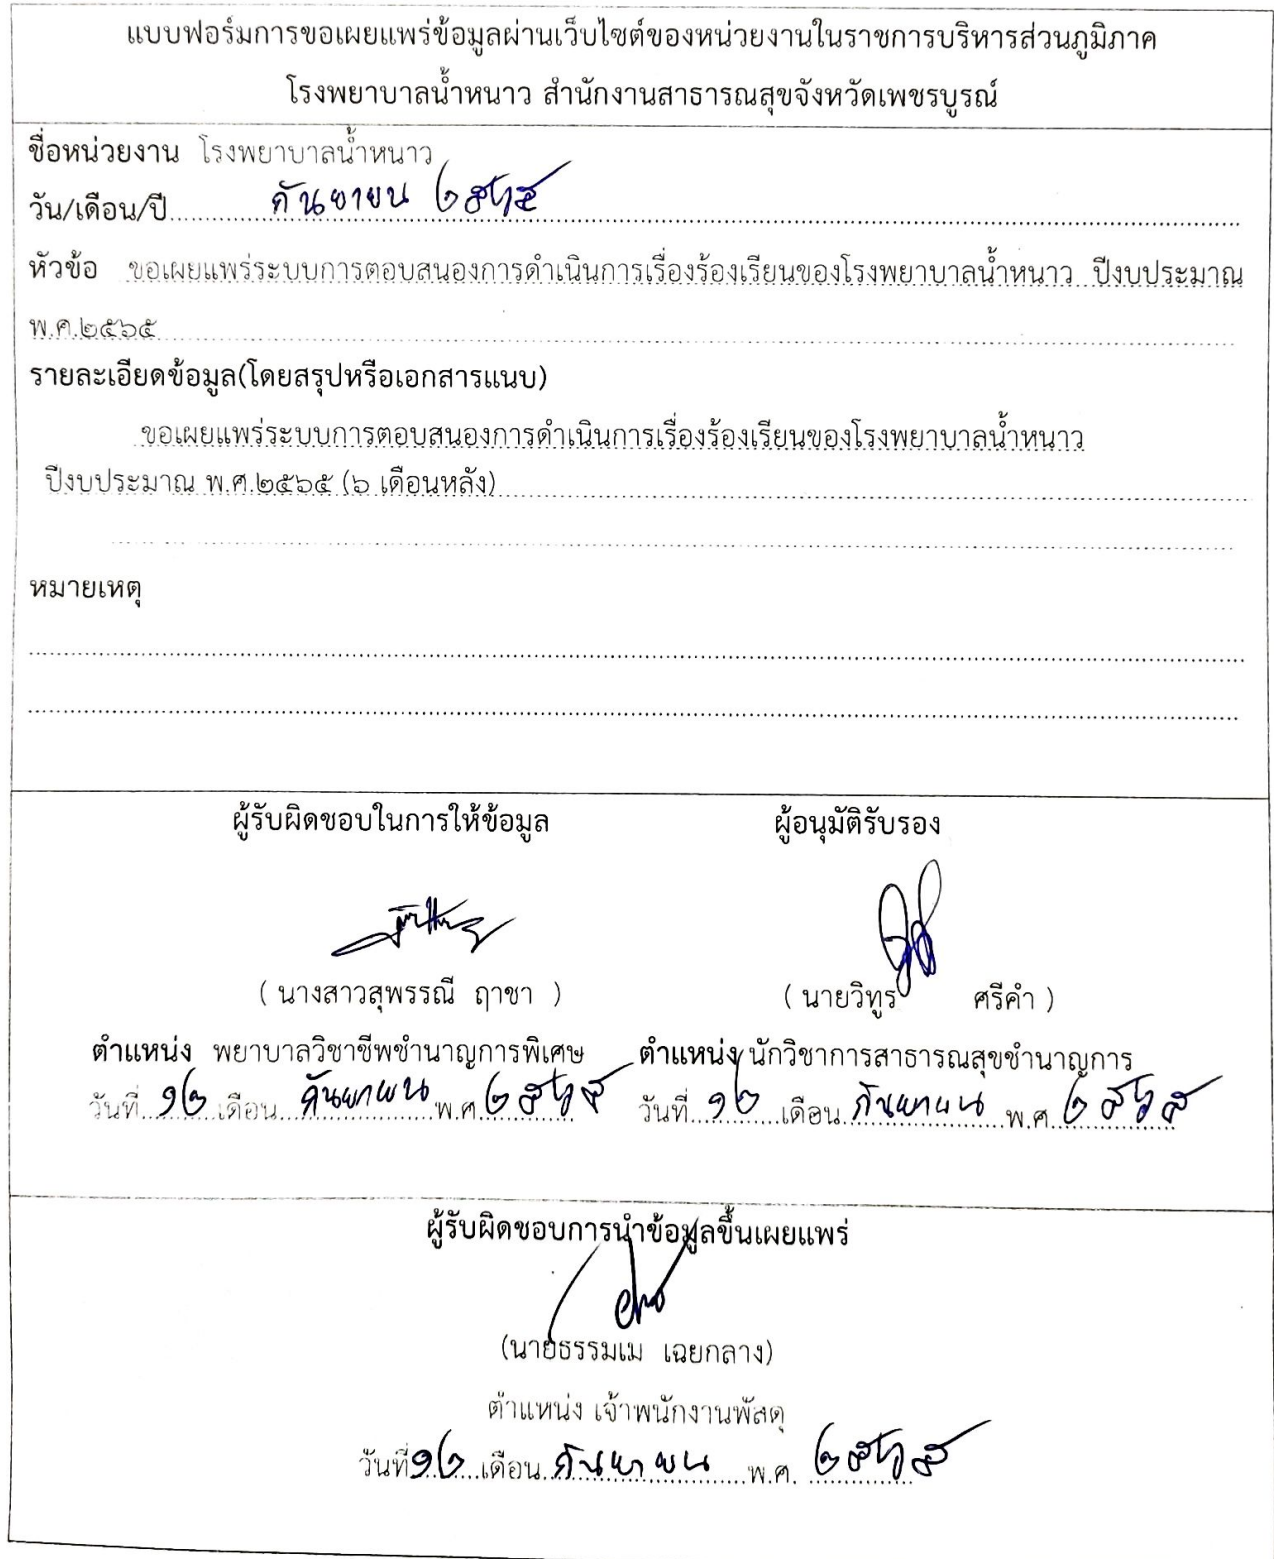 แบบฟอร์มการขอเผยแพร่ข้อมูลผ่านเว็บไซต์ของหน่วยงานในราชการบริหารส่วนภูมิภาค
โรงพยาบาลน้ำหนาว สำนักงานสาธารณสุขจังหวัดเพชรบูรณ์
ชื่อหน่วยงาน โรงพยาบาลน้ำหนาว
วัน/เดือน/ปี กันยายน ๒๕๖๕
หัวข้อ ขอเผยแพร่ระบบการตอบสนองการดำเนินการเรื่องร้องเรียนของโรงพยาบาลน้ำหนาว ปีงบประมาณ
พ.ศ.๒๕๖๕
รายละเอียดข้อมูล(โดยสรุปหรือเอกสารแนบ)
ขอเผยแพร่ระบบการตอบสนองการดำเนินการเรื่องร้องเรียนของโรงพยาบาลน้ำหนาว
ปีงบประมาณ พ.ศ.๒๕๖๕ (๖ เดือนหลัง)
หมายเหตุ
ผู้รับผิดชอบในการให้ข้อมูล ผู้อนุมัติรับรอง
( นางสาวสุพรรณี ฤาชา ) ( นายวิทูร ศรีคำ )
ตำแหน่ง พยาบาลวิชาชีพชำนาญการพิเศษ ตำแหน่ง นักวิชาการสาธารณสุขชำนาญการ
วันที่ ๑๒ เดือน กันยายน พ.ศ ๒๕๖๕ วันที่ ๑๒ เดือน กันยายน พ.ศ. ๒๕๖๕
ผู้รับผิดชอบการนำข้อมูลขึ้นเผยแพร่
(นายธรรมเม เฉยกลาง)
ตำแหน่ง เจ้าพนักงานพัสดุ
วันที่ ๑๒ เดือน กันยายน พ.ศ. ๒๕๖๕